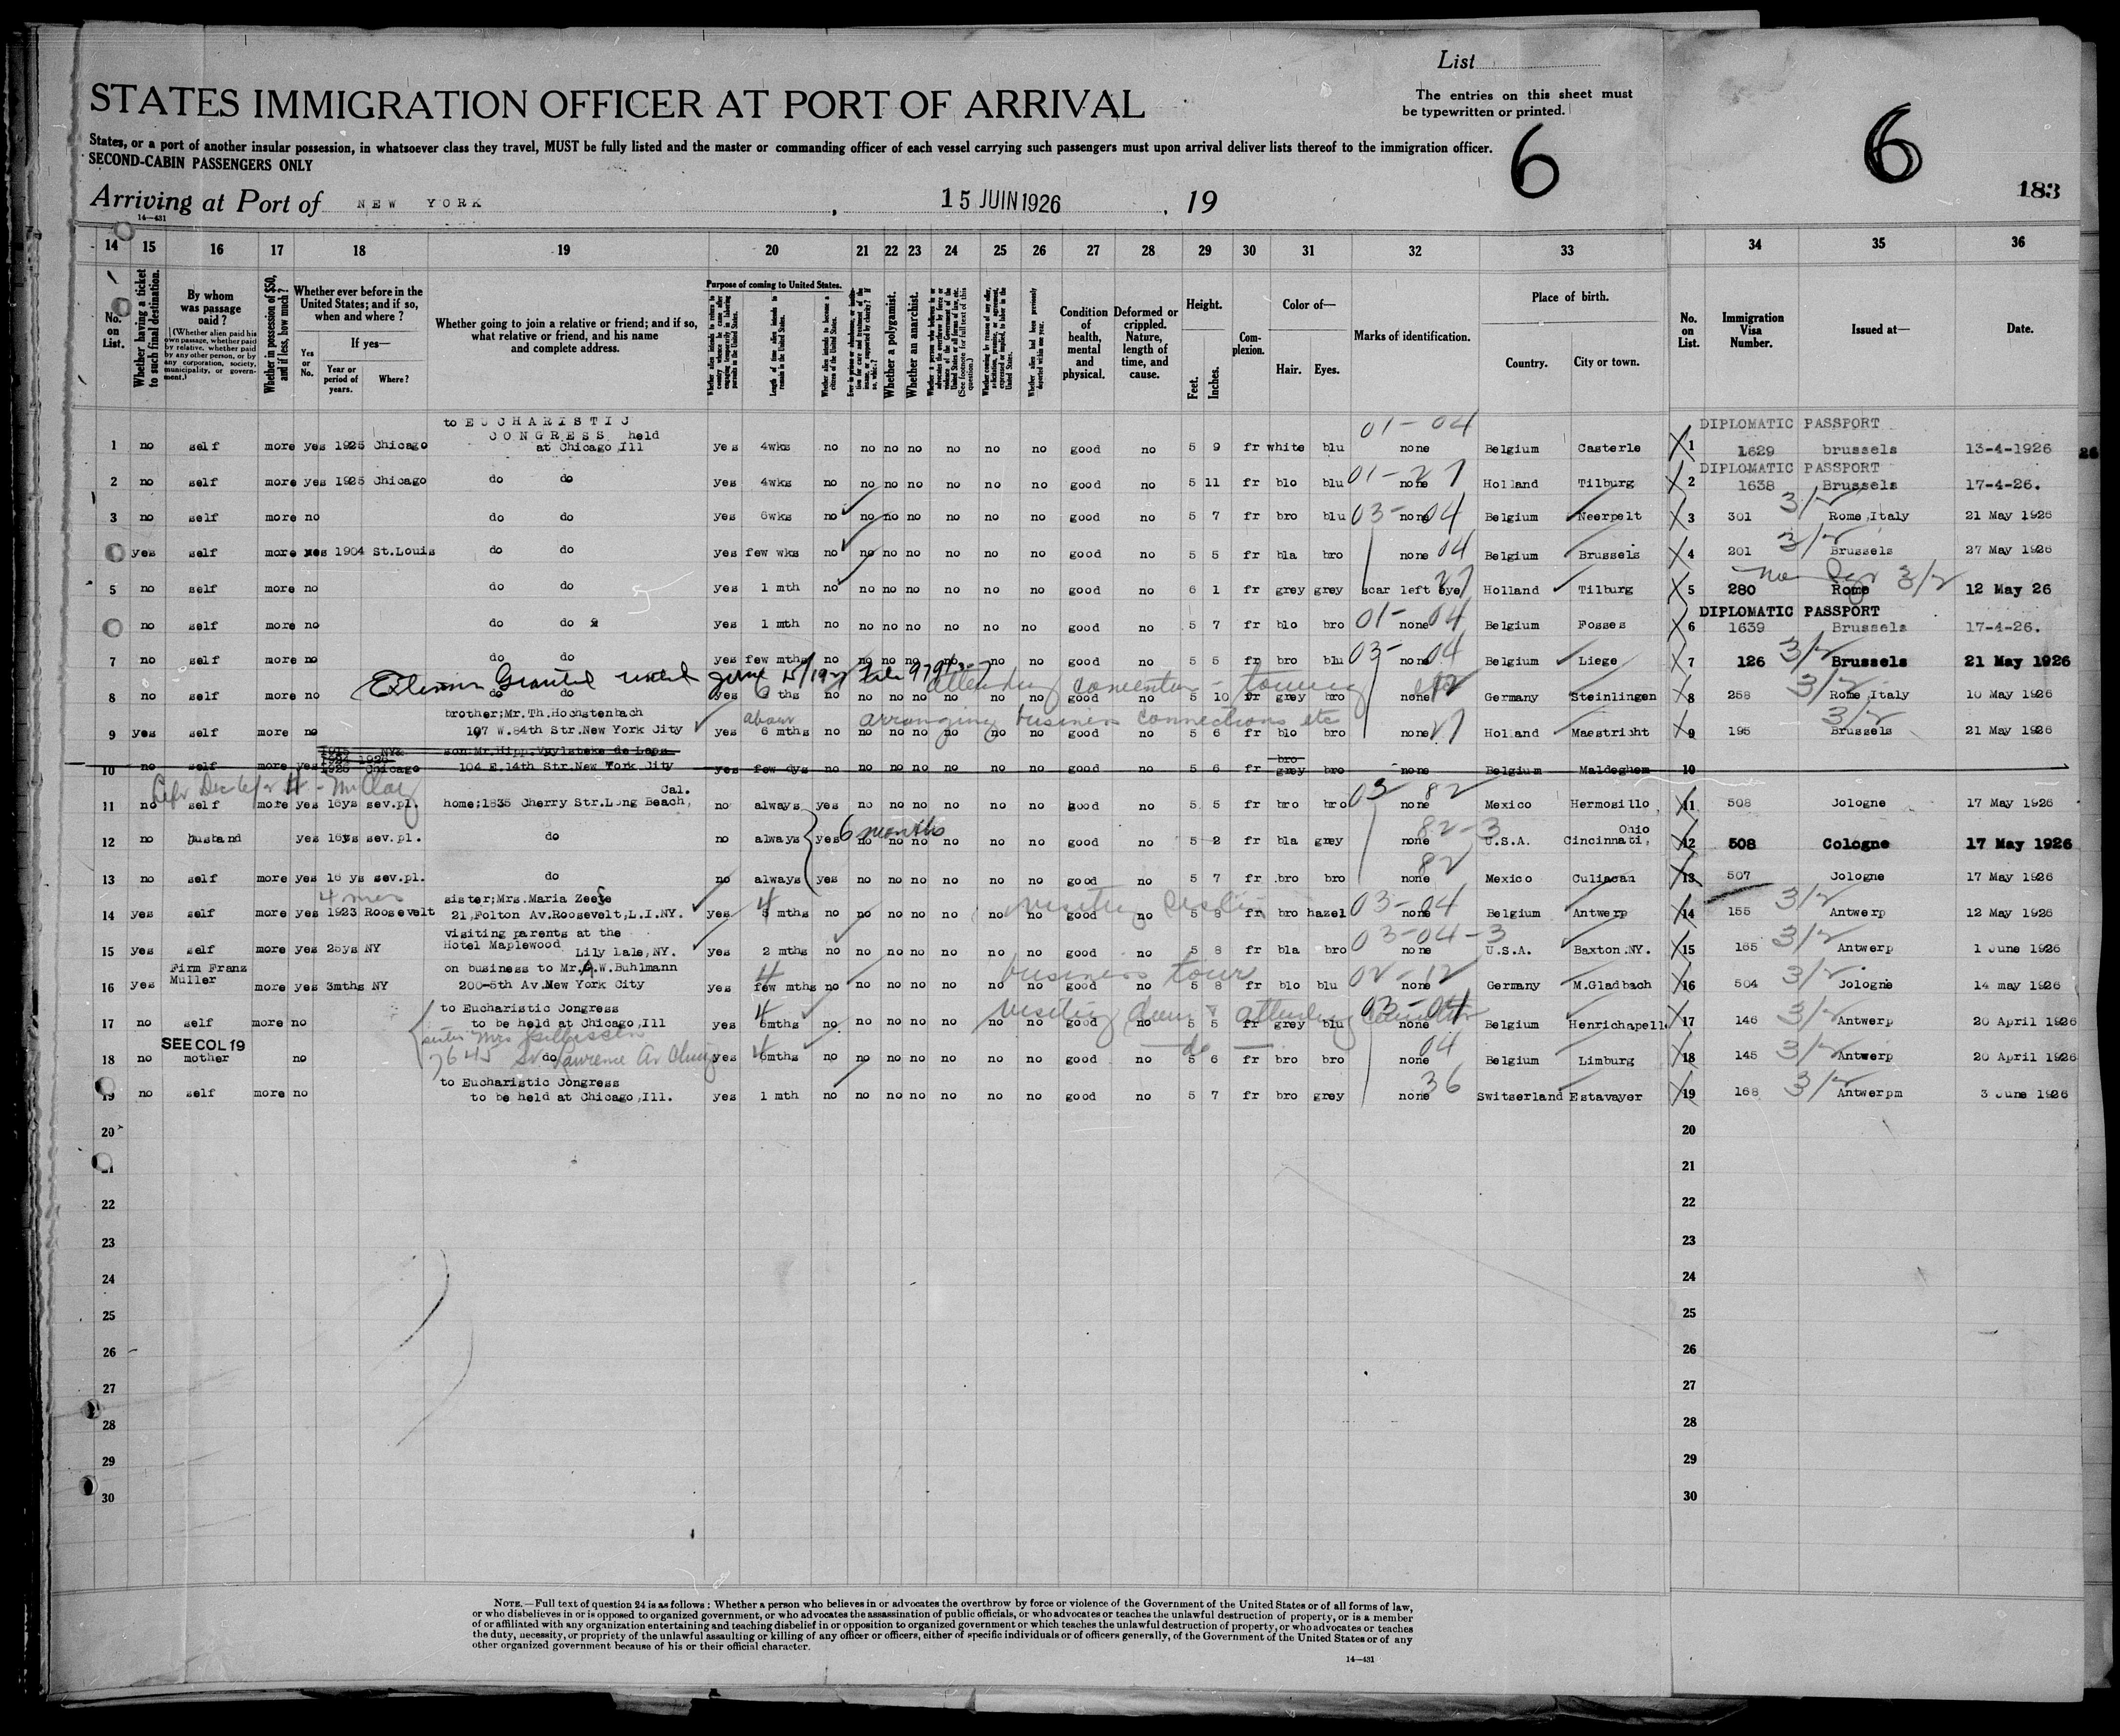 List
STATES IMMIGRATION OFFICER AT PORT OF ARRIVAL
The entries on this sheet must
be typewritten or printed.
6
6
183
States, or a port of another insular possession, in whatsoever class they travel, MUST be fully listed and the master or commanding officer of each vessel carrying such passengers must upon arrival deliver lists thereof to the immigration officer.
SECOND-CABIN PASSENGERS ONLY
Arriving at Port of NEW YORK, 15 JUIN 1926, 19
14—431
14 15 16 17 18 19 20 21 22 23 24 25 26 27 28 29 30 31 32 33 34 35 36
No. on List.
Whether having a ticket to such final destination.
By whom was passage paid?
(Whether alien paid his own passage, whether paid by relative, whether paid by any other person, or by any corporation, society, municipality, or government.)
Whether in possession of $50, and if less, how much?
Whether ever before in the United States; and if so, when and where?
Yes or No.
If yes—
Year or period of years.
Where?
Whether going to join a relative or friend; and if so, what relative or friend, and his name and complete address.
Purpose of coming to United States.
Length of time alien intends to remain in the United States.
Whether alien intends to become a citizen of the United States.
Whether a polygamist.
Whether an anarchist.
Condition of health, mental and physical.
Deformed or crippled. Nature, length of time, and cause.
Height.
Feet. Inches.
Complexion.
Color of—
Hair. Eyes.
Marks of identification.
Place of birth.
Country. City or town.
No. on List.
Immigration Visa Number.
Issued at—
Date.
to EUCHARISTIC 01-04 DIPLOMATIC PASSPORT
CONGRESS held
1 no self more yes 1925 Chicago at Chicago Ill yes 4wks no no no no no no no good no 5 9 fr white blu none Belgium Casterle 1 1629 brussels 13-4-1926 26
DIPLOMATIC PASSPORT
2 no self more yes 1925 Chicago do do yes 4wks no no no no no no no good no 5 11 fr blo blu 01-27 none Holland Tilburg 2 1638 Brussels 17-4-26.
3 no self more no do do yes 6wks no no no no no no no good no 5 7 fr bro blu 03-04 none Belgium Neerpelt 3 301 3/2 Rome Italy 21 May 1926
yes self more yes 1904 St.Louis do do yes few wks no no no no no no no good no 5 5 fr bla bro none 04 Belgium Brussels 4 201 3/2 Brussels 27 May 1926
5 no self more no do do yes 1 mth no no no no no no no good no 6 1 fr grey grey scar left eye 27 Holland Tilburg 5 280 Rome 3/2 12 May 26
DIPLOMATIC PASSPORT
no self more no do do yes 1 mth no no no no no no no good no 5 7 fr blo bro 01-04 none Belgium Fosses 6 1639 Brussels 17-4-26.
7 no self more no do do yes few mths no no no no no no no good no 5 5 fr bro blu 03-04 none Belgium Liege 7 126 3/2 Brussels 21 May 1926
Extension Granted until June 15/1927 File
attending convention - touring
8 no self more no do do yes 6 ths no no no no no no no good no 5 10 fr grey bro none 12 Germany Steinlingen 8 258 3/2 Rome Italy 10 May 1926
brother;Mr.Th.Hochstenbach about arranging business connections etc
9 yes self more no 107 W.84th Str.New York City yes 6 mths no no no no no no no good no 5 6 fr blo bro none 27 Holland Maestricht 9 195 3/2 Brussels 21 May 1926
son:Mr.Hipp.Vuylsteke de Laps
10 no self more yes 1926 Chicago 104 E.14th Str.New York City yes few dys no no no no no no no good no 5 6 fr bro grey bro none Belgium Maldeghem 10
Cal.
11 no self more yes 16ys sev.pl. home;1835 Cherry Str.Long Beach, no always yes no no no no no no good no 5 5 fr bro bro 03 82 none Mexico Hermosillo 11 508 Cologne 17 May 1926
6 months 82-3 Ohio
12 no husband yes 16ys sev.pl. do no always yes no no no no no no good no 5 2 fr bla grey none U.S.A. Cincinnati, 12 508 Cologne 17 May 1926
13 no self more yes 16 ys sev.pl. do no always yes no no no no no no good no 5 7 fr bro bro 82 none Mexico Culiacan 13 507 Cologne 17 May 1926
4 mos sister;Mrs.Maria Zeefe
14 yes self more yes 1923 Roosevelt 21,Folton Av.Roosevelt,L.I.NY. yes 4 5 mths no no no no no no no visiting good no 5 8 fr bro hazel 03-04 none Belgium Antwerp 14 155 3/2 Antwerp 12 May 1926
visiting parents at the
Hotel Maplewood 03-04-3
15 yes self more yes 25ys NY Lily Lale,NY. yes 2 mths no no no no no no no good no 5 8 fr bla bro none U.S.A. Baxton.NY. 15 165 3/2 Antwerp 1 June 1926
Firm Franz Muller on business to Mr.A.W.Buhlmann business tour
16 yes more yes 3mths NY 200-5th Av.New York City yes 4 few mths no no no no no no no good no 5 8 fr blo blu 02-12 none Germany M.Gladbach 16 504 3/2 Cologne 14 may 1926
to Eucharistic Congress visiting & attending
17 no self more no to be held at Chicago,Ill yes 4 6mths no no no no no no no good no 5 5 fr grey blu 03-04 none Belgium Henrichapelle 17 146 3/2 Antwerp 20 April 1926
SEE COL 19 sister Mrs
7645 St Lawrence Av
18 no mother no do yes 4 6mths no no no no no no no good no do 5 6 fr bro bro 04 none Belgium Limburg 18 145 3/2 Antwerp 20 April 1926
to Eucharistic Congress
19 no self more no to be held at Chicago,Ill. yes 1 mth no no no no no no no good no 5 7 fr bro grey 36 none Switserland Estavayer 19 168 3/2 Antwerpm 3 June 1926
20 20
21 21
22 22
23 23
24 24
25 25
26 26
27 27
28 28
29 29
30 30
NOTE.—Full text of question 24 is as follows: Whether a person who believes in or advocates the overthrow by force or violence of the Government of the United States or of all forms of law,
or who disbelieves in or is opposed to organized government, or who advocates the assassination of public officials, or who advocates or teaches the unlawful destruction of property, or is a member
of or affiliated with any organization entertaining and teaching disbelief in or opposition to organized government or which teaches the unlawful destruction of property, or who advocates or teaches
the duty, necessity, or propriety of the unlawful assaulting or killing of any officer or officers, either of specific individuals or of officers generally, of the Government of the United States or of any
other organized government because of his or their official character.
14—431